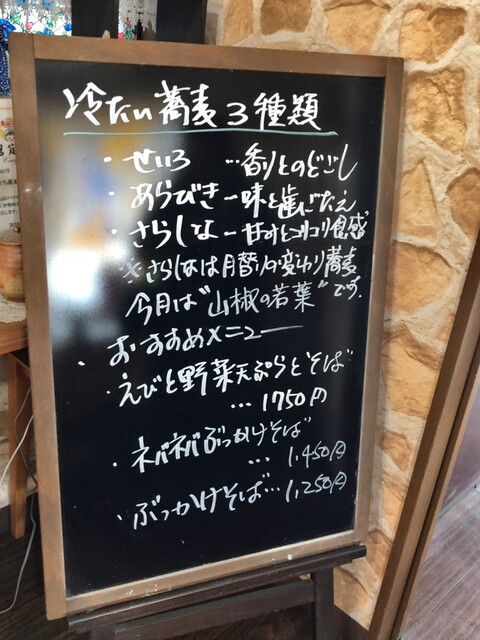 冷たい蕎麦3種類
・せいろ …香りとのどごし
・あらびき ー味と歯ごたえ
・さらしな ー甘みとコリコリ食感
※さらしなは月替りの変わり蕎麦
今月は"山椒の若葉"です.
・おすすめメニュー
・えびと野菜天ぷらとそば
… 1750円
・ネバネバぶっかけそば
… 1,450円
・ぶっかけそば… 1,250円